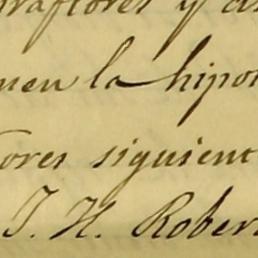 raflores y a
men la hipo
ores siguient
J. H. Rober